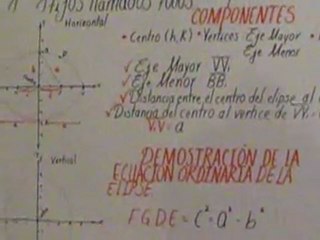 fijos llamados focos
Horizontal
COMPONENTES
• Centro (h,k) • Vertices Eje Mayor •
Eje Menor
✓ Eje Mayor VV.
✓ Eje Menor BB.
✓ Distancia entre el centro del elipse al
✓ Distancia del centro al vertice de VV.
V.V = a
Vertical
DEMOSTRACIÓN DE LA
ECUACIÓN ORDINARIA DE LA
ELIPSE.
F G D E = C² = a² - b²